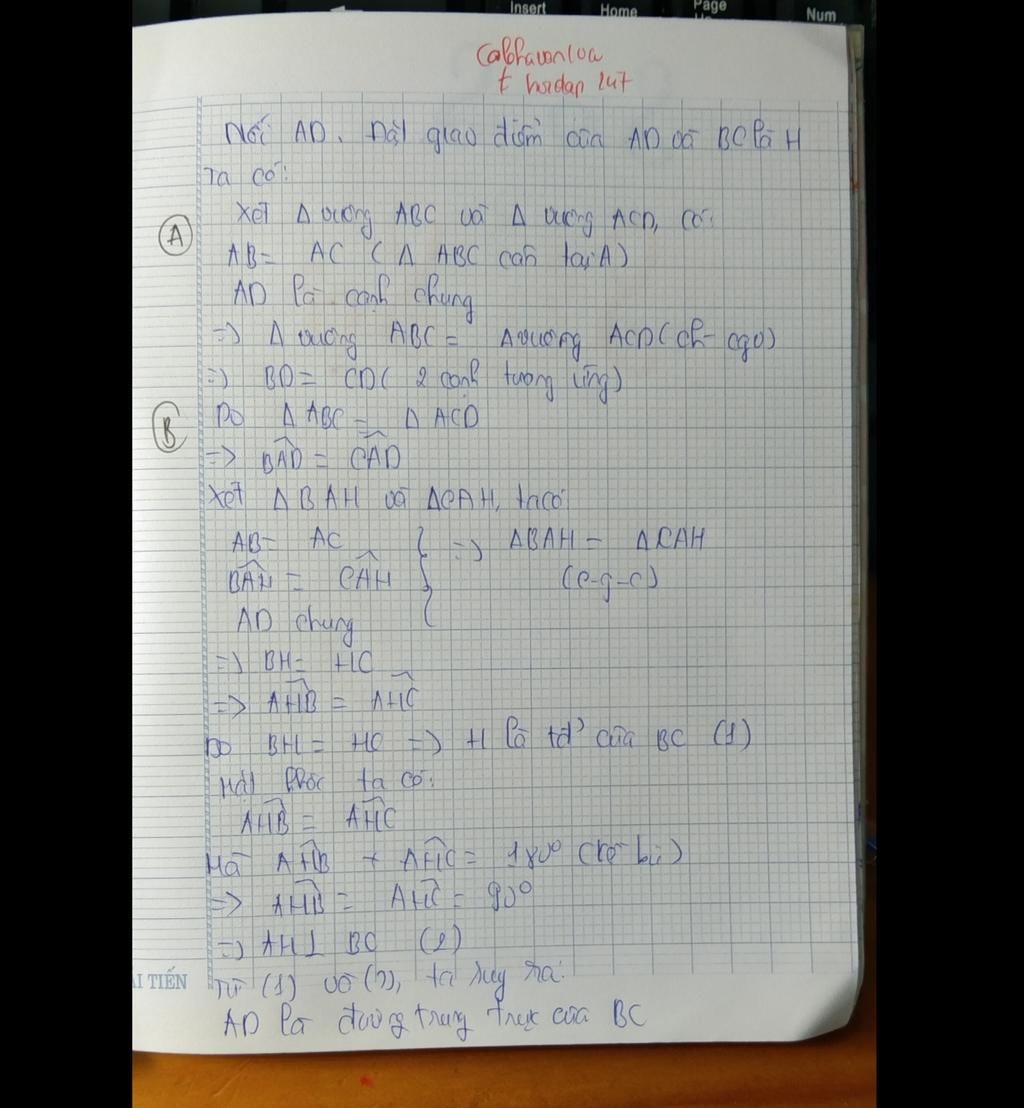 Insert Home Page Num
Calofhavonloa
t hoidap 247
Nối AD. Đặt giao điểm của AD và BC là H
Ta có:
Xét Δ vuông ABC và Δ vuông ACD, có:
A
AB = AC (Δ ABC cân tại A)
AD là cạnh chung
=> Δ vuông ABC = Δ vuông ACD (ch-cgv)
=> BD = CD (2 cạnh tương ứng)
B
Do Δ ABC = Δ ACD
=> BAD = CAD
Xét Δ BAH và ΔCAH, ta có
AB = AC => ΔBAH = ΔCAH
BAH = CAH (c-g-c)
AD chung
=> BH = HC
=> AHB = AHC
Do BH = HC => H là tđ của BC (1)
Mặt khác ta có:
AHB = AHC
Mà AHB + AHC = 180° (kề bù)
=> AHB = AHC = 90°
=> AH ⊥ BC (2)
I TIẾN
Từ (1) và (2), ta suy ra:
AD là đường trung trực của BC